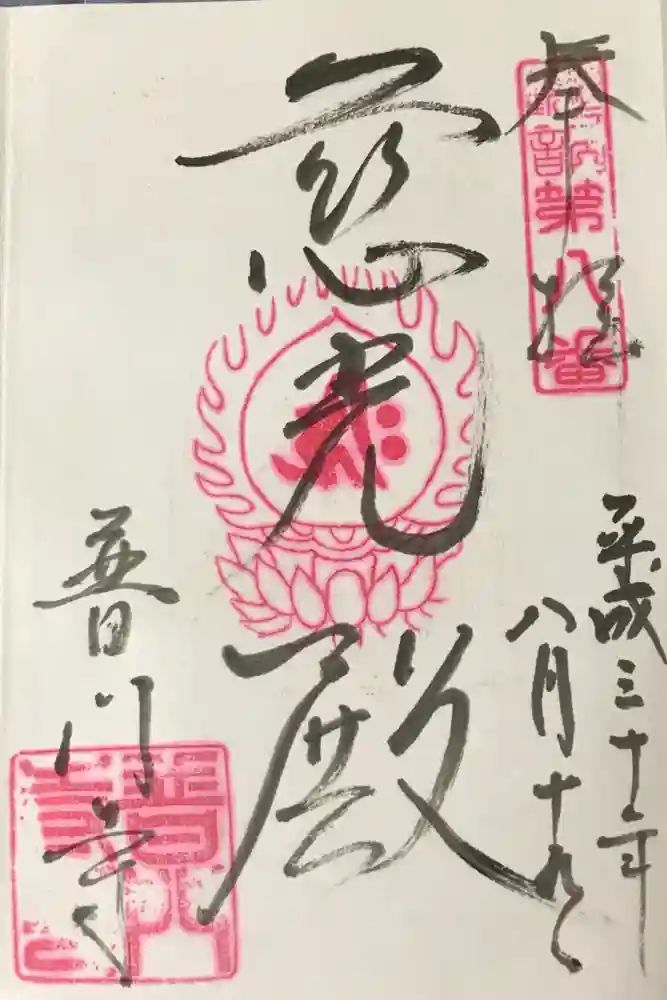 奉拝
第八番
慈光殿
平成三十年
八月十九日
普門寺